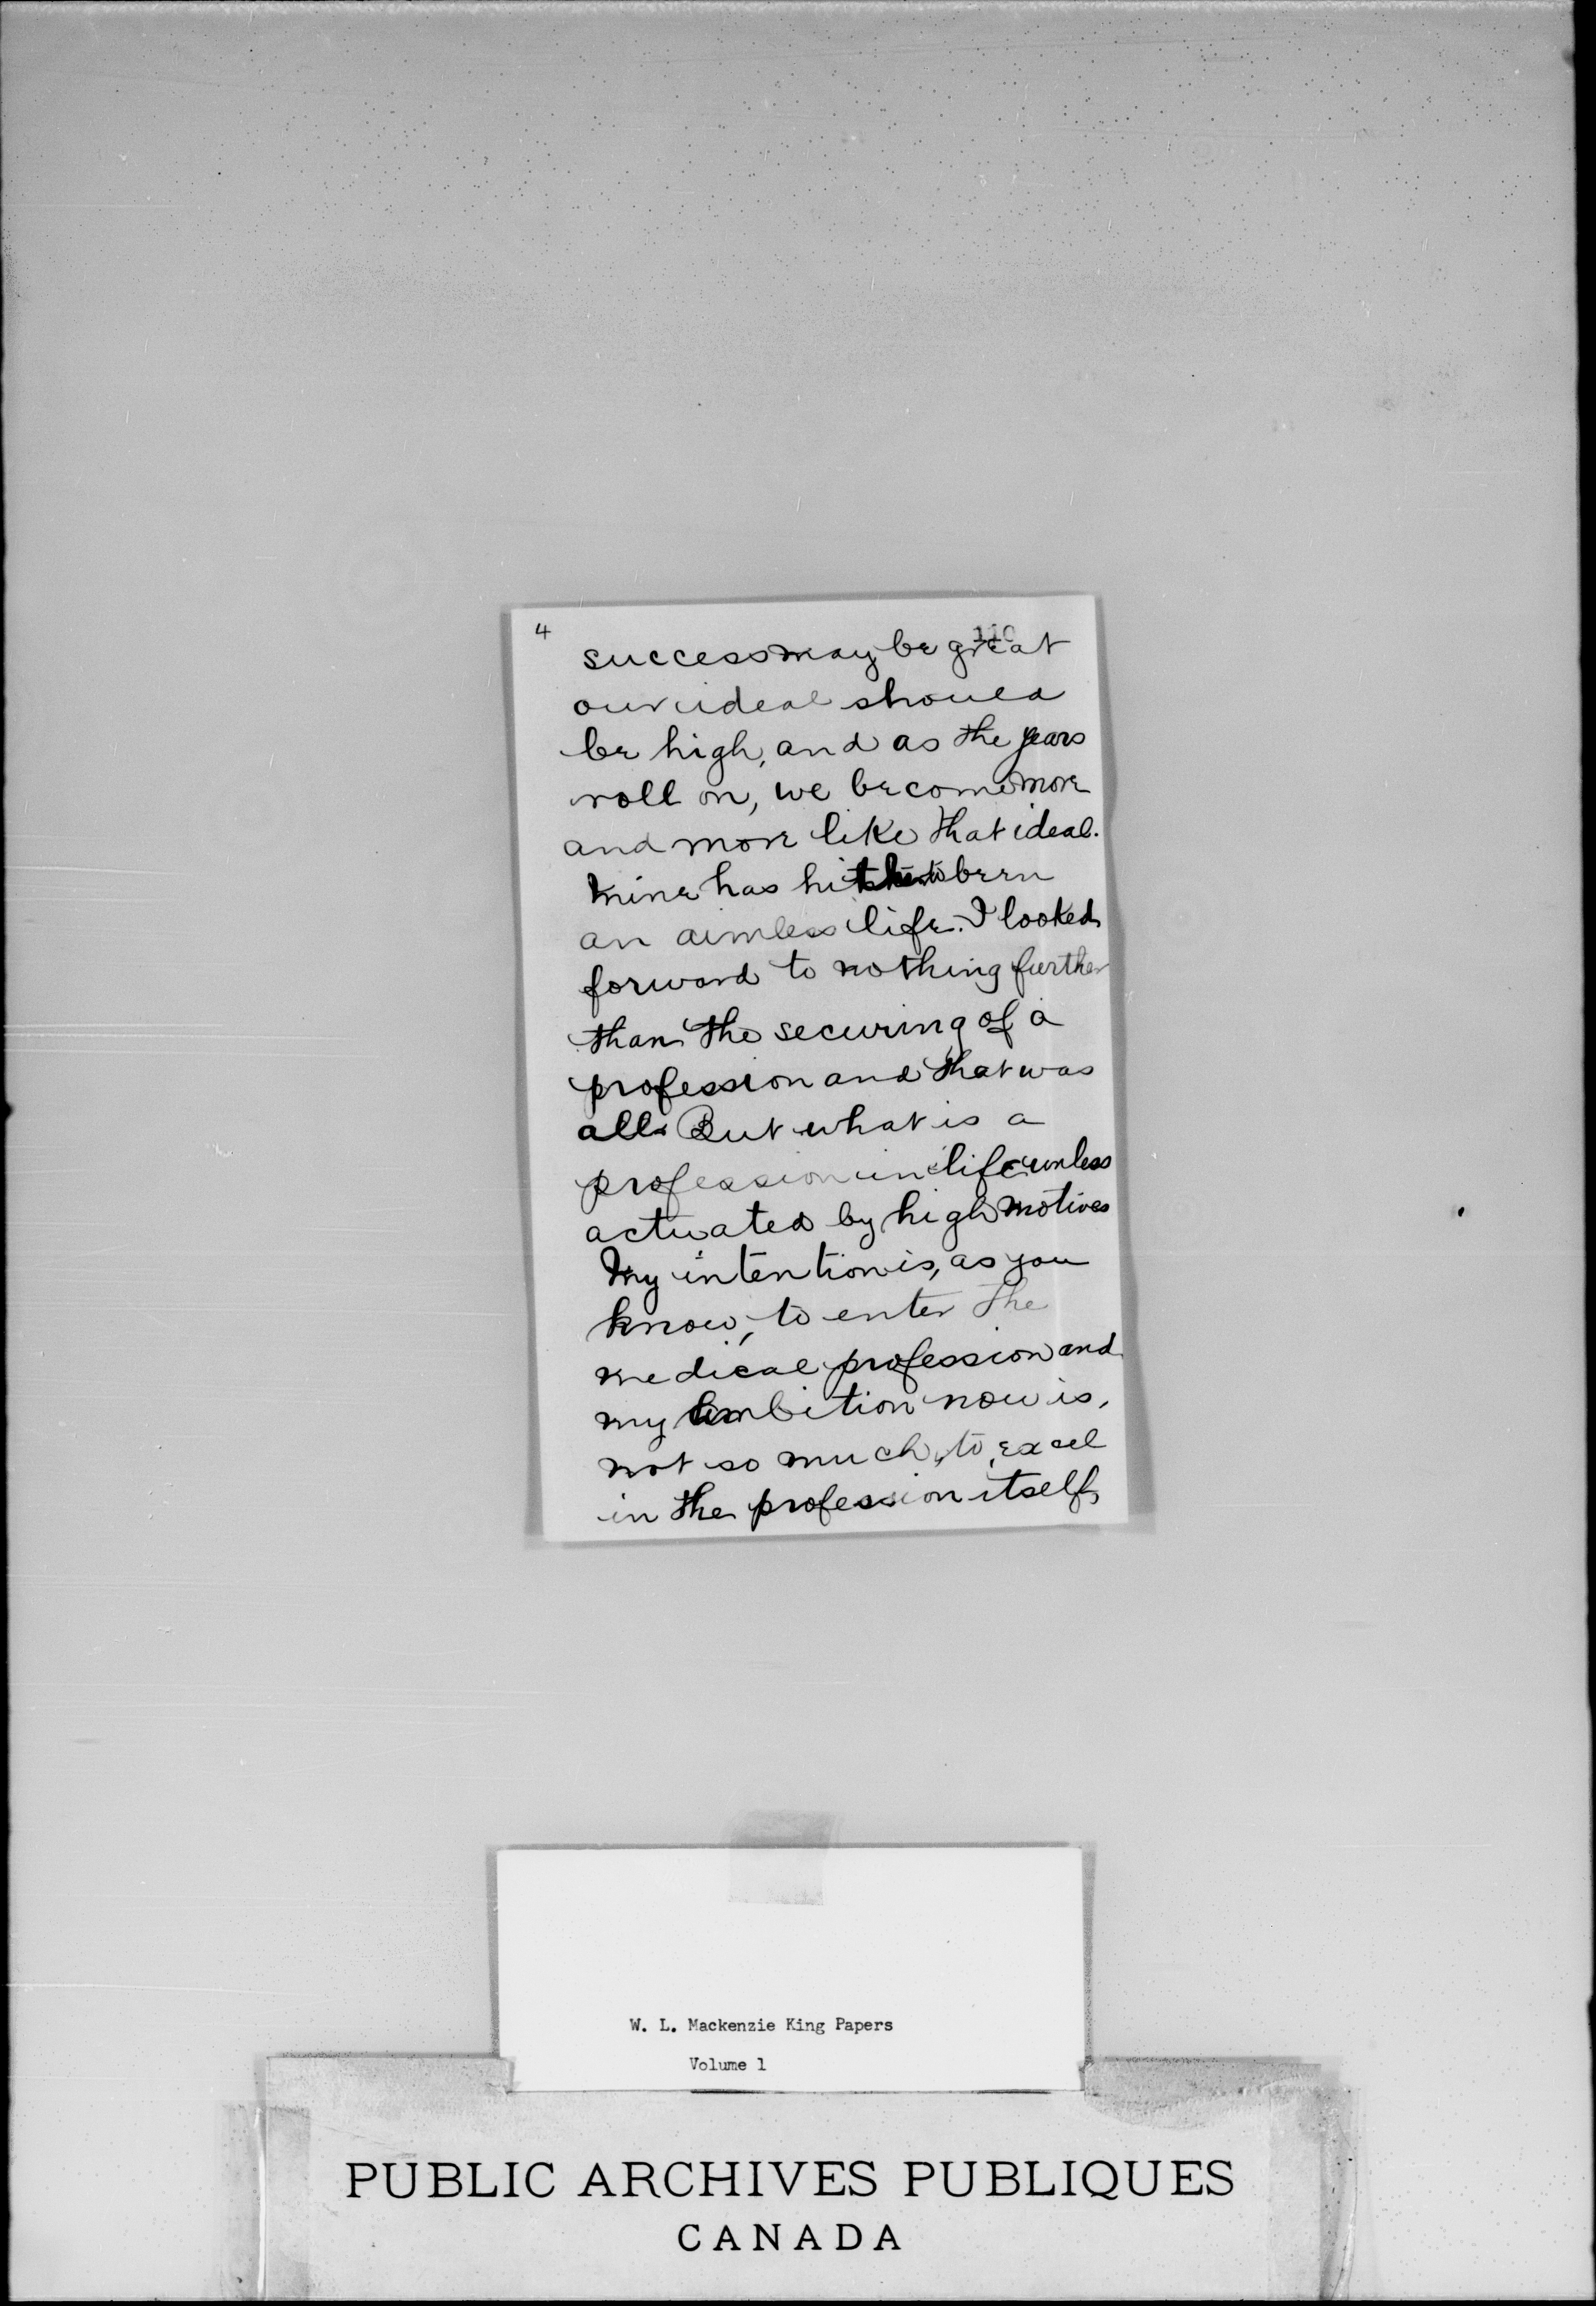 4
110
success may be great
our ideal should
be high, and as the years
roll on, we become more
and more like that ideal.
Mine has hitherto been
an aimless life. I looked
forward to nothing further
than the securing of a
profession and that was
all. But what is a
profession in life unless
actuated by high motives
My intention is, as you
know, to enter the
medical profession and
my ambition now is,
not so much, to, excel
in the profession itself,
W. L. Mackenzie King Papers
Volume 1
PUBLIC ARCHIVES PUBLIQUES
CANADA